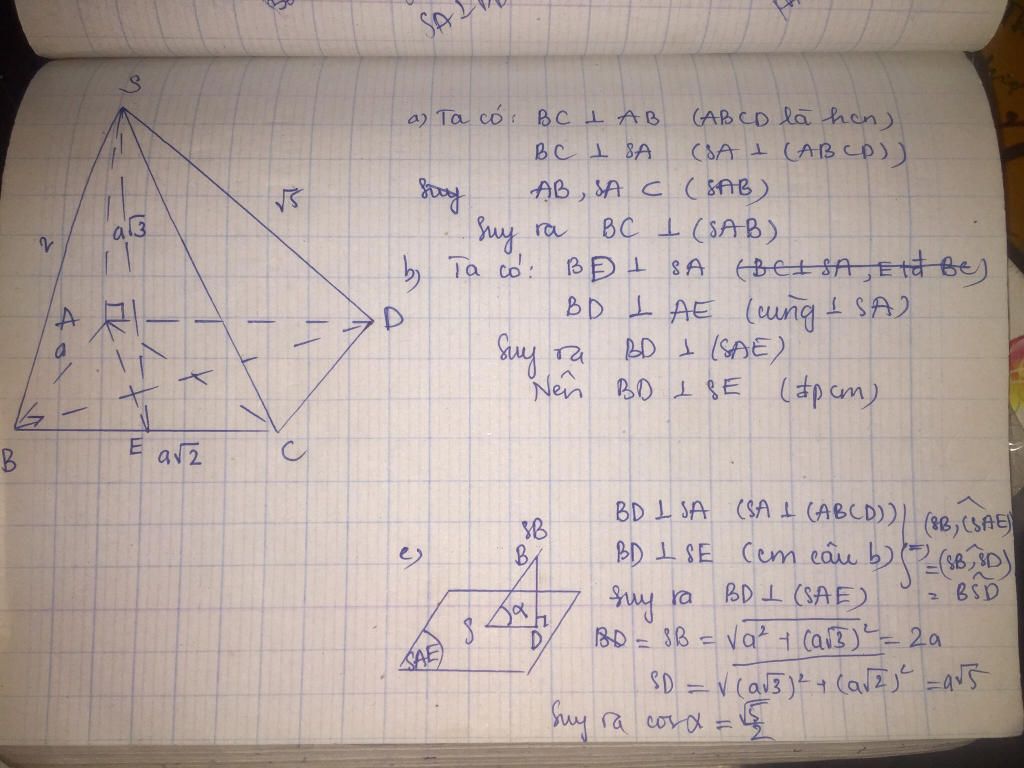 SA ⊥
S
2
a√3
√5
A
a
D
B
E
a√2
C
a) Ta có: BC ⊥ AB (ABCD là hcn)
BC ⊥ SA (SA ⊥ (ABCD))
Suy AB, SA ⊂ (SAB)
Suy ra BC ⊥ (SAB)
b) Ta có: BD ⊥ SA (BC ⊥ SA, E tđ BC)
BD ⊥ AE (cùng ⊥ SA)
Suy ra BD ⊥ (SAE)
Nên BD ⊥ SE (đpcm)
c)
SB
B
α
S
D
(SAE)
BD ⊥ SA (SA ⊥ (ABCD))
BD ⊥ SE (cm câu b)
Suy ra BD ⊥ (SAE)
(SB, (SAE))
= (SB, SD)
= BSD
BD = SB = √(a² + (a√3)²) = 2a
SD = √((a√3)² + (a√2)²) = a√5
Suy ra cosα = √5/2